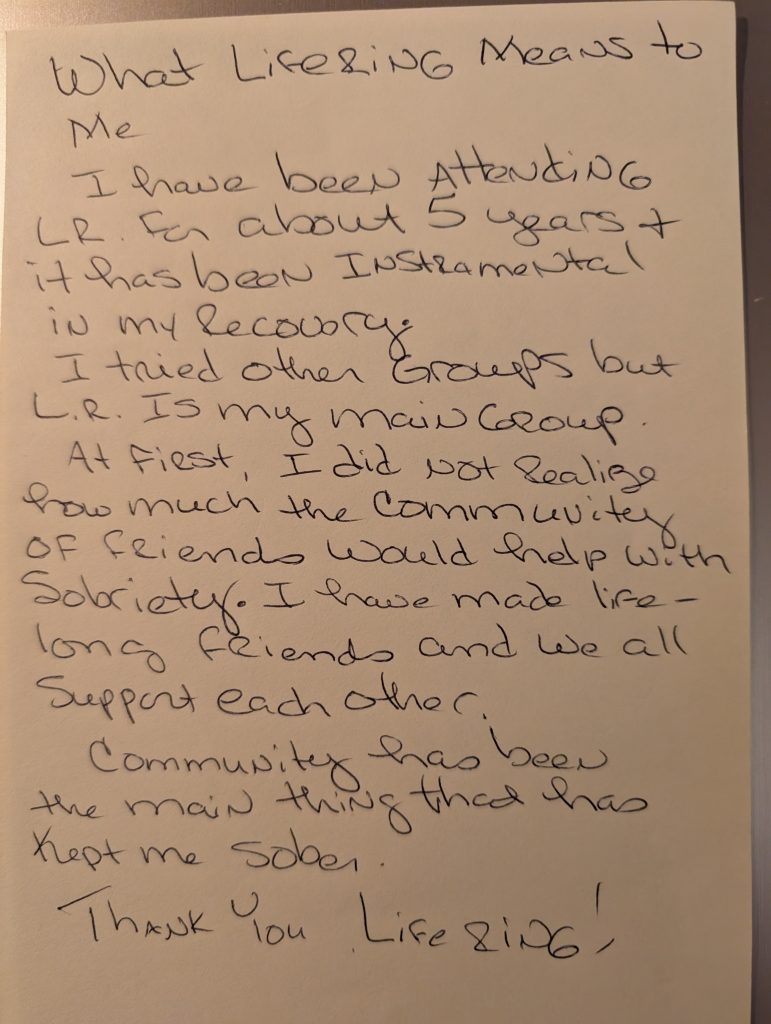 What LifeRing Means to
Me
I have been Attending
L.R. For about 5 years +
it has been Instramental
in my Recovory.
I tried other Groups but
L.R. Is my main Group.
At First, I did not Realize
how much the Community
OF Friends would help with
Sobriety. I have made life-
long friends and we all
Support each other.
Community has been
the main thing that has
Kept me sober.
Thank You LifeRing!